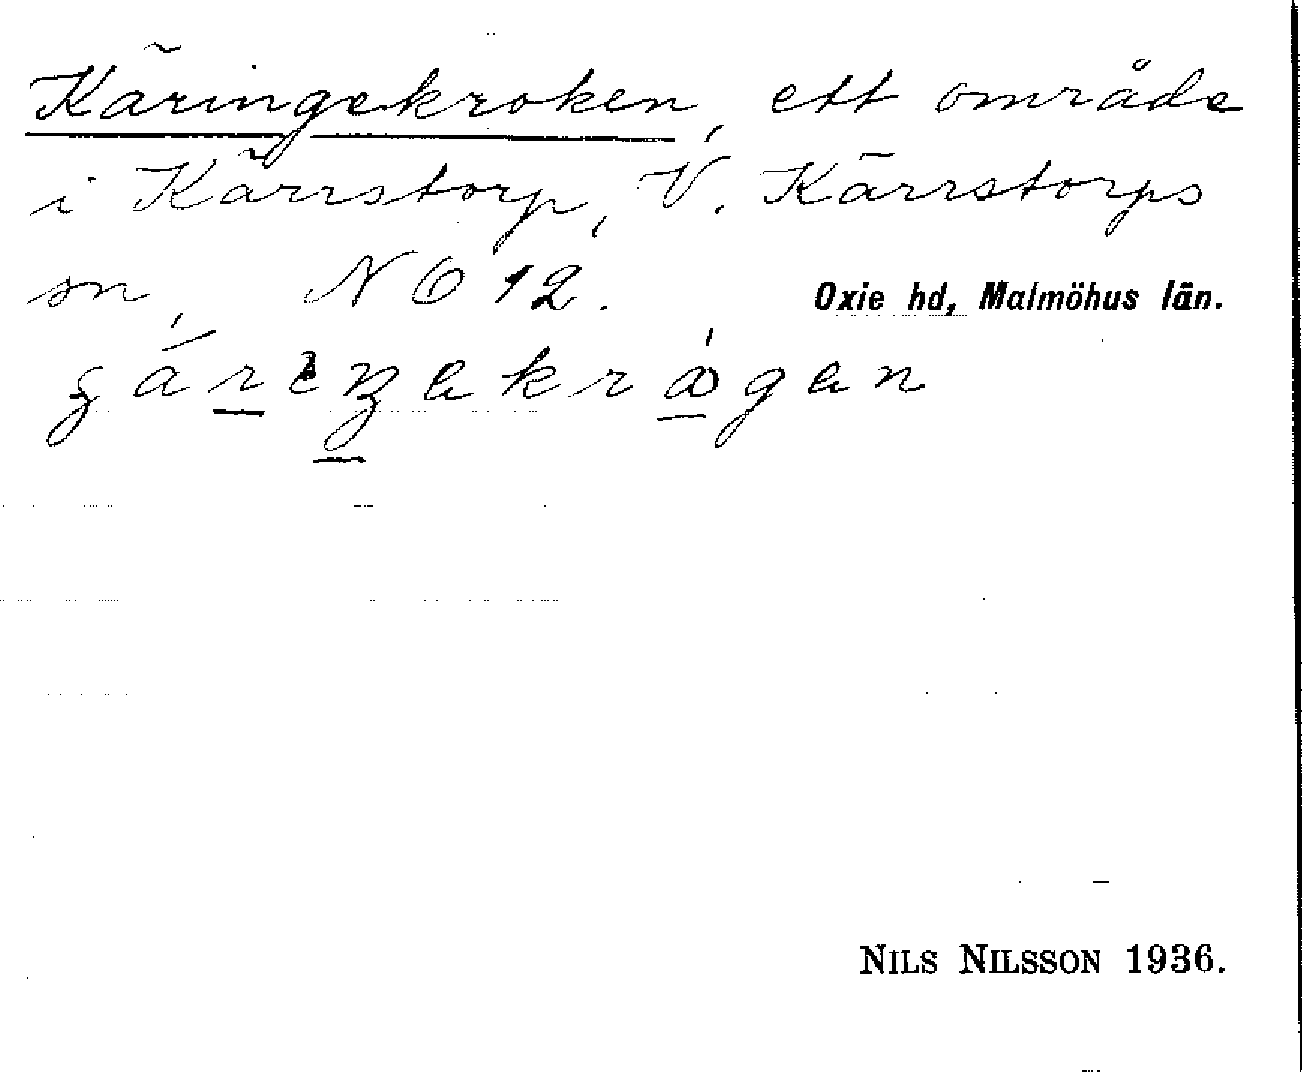 Käringekroken, ett område
i Kärrstorp, V. Kärrstorps
sn, NO 12. Oxie hd, Malmöhus län.
NILS NILSSON 1936.